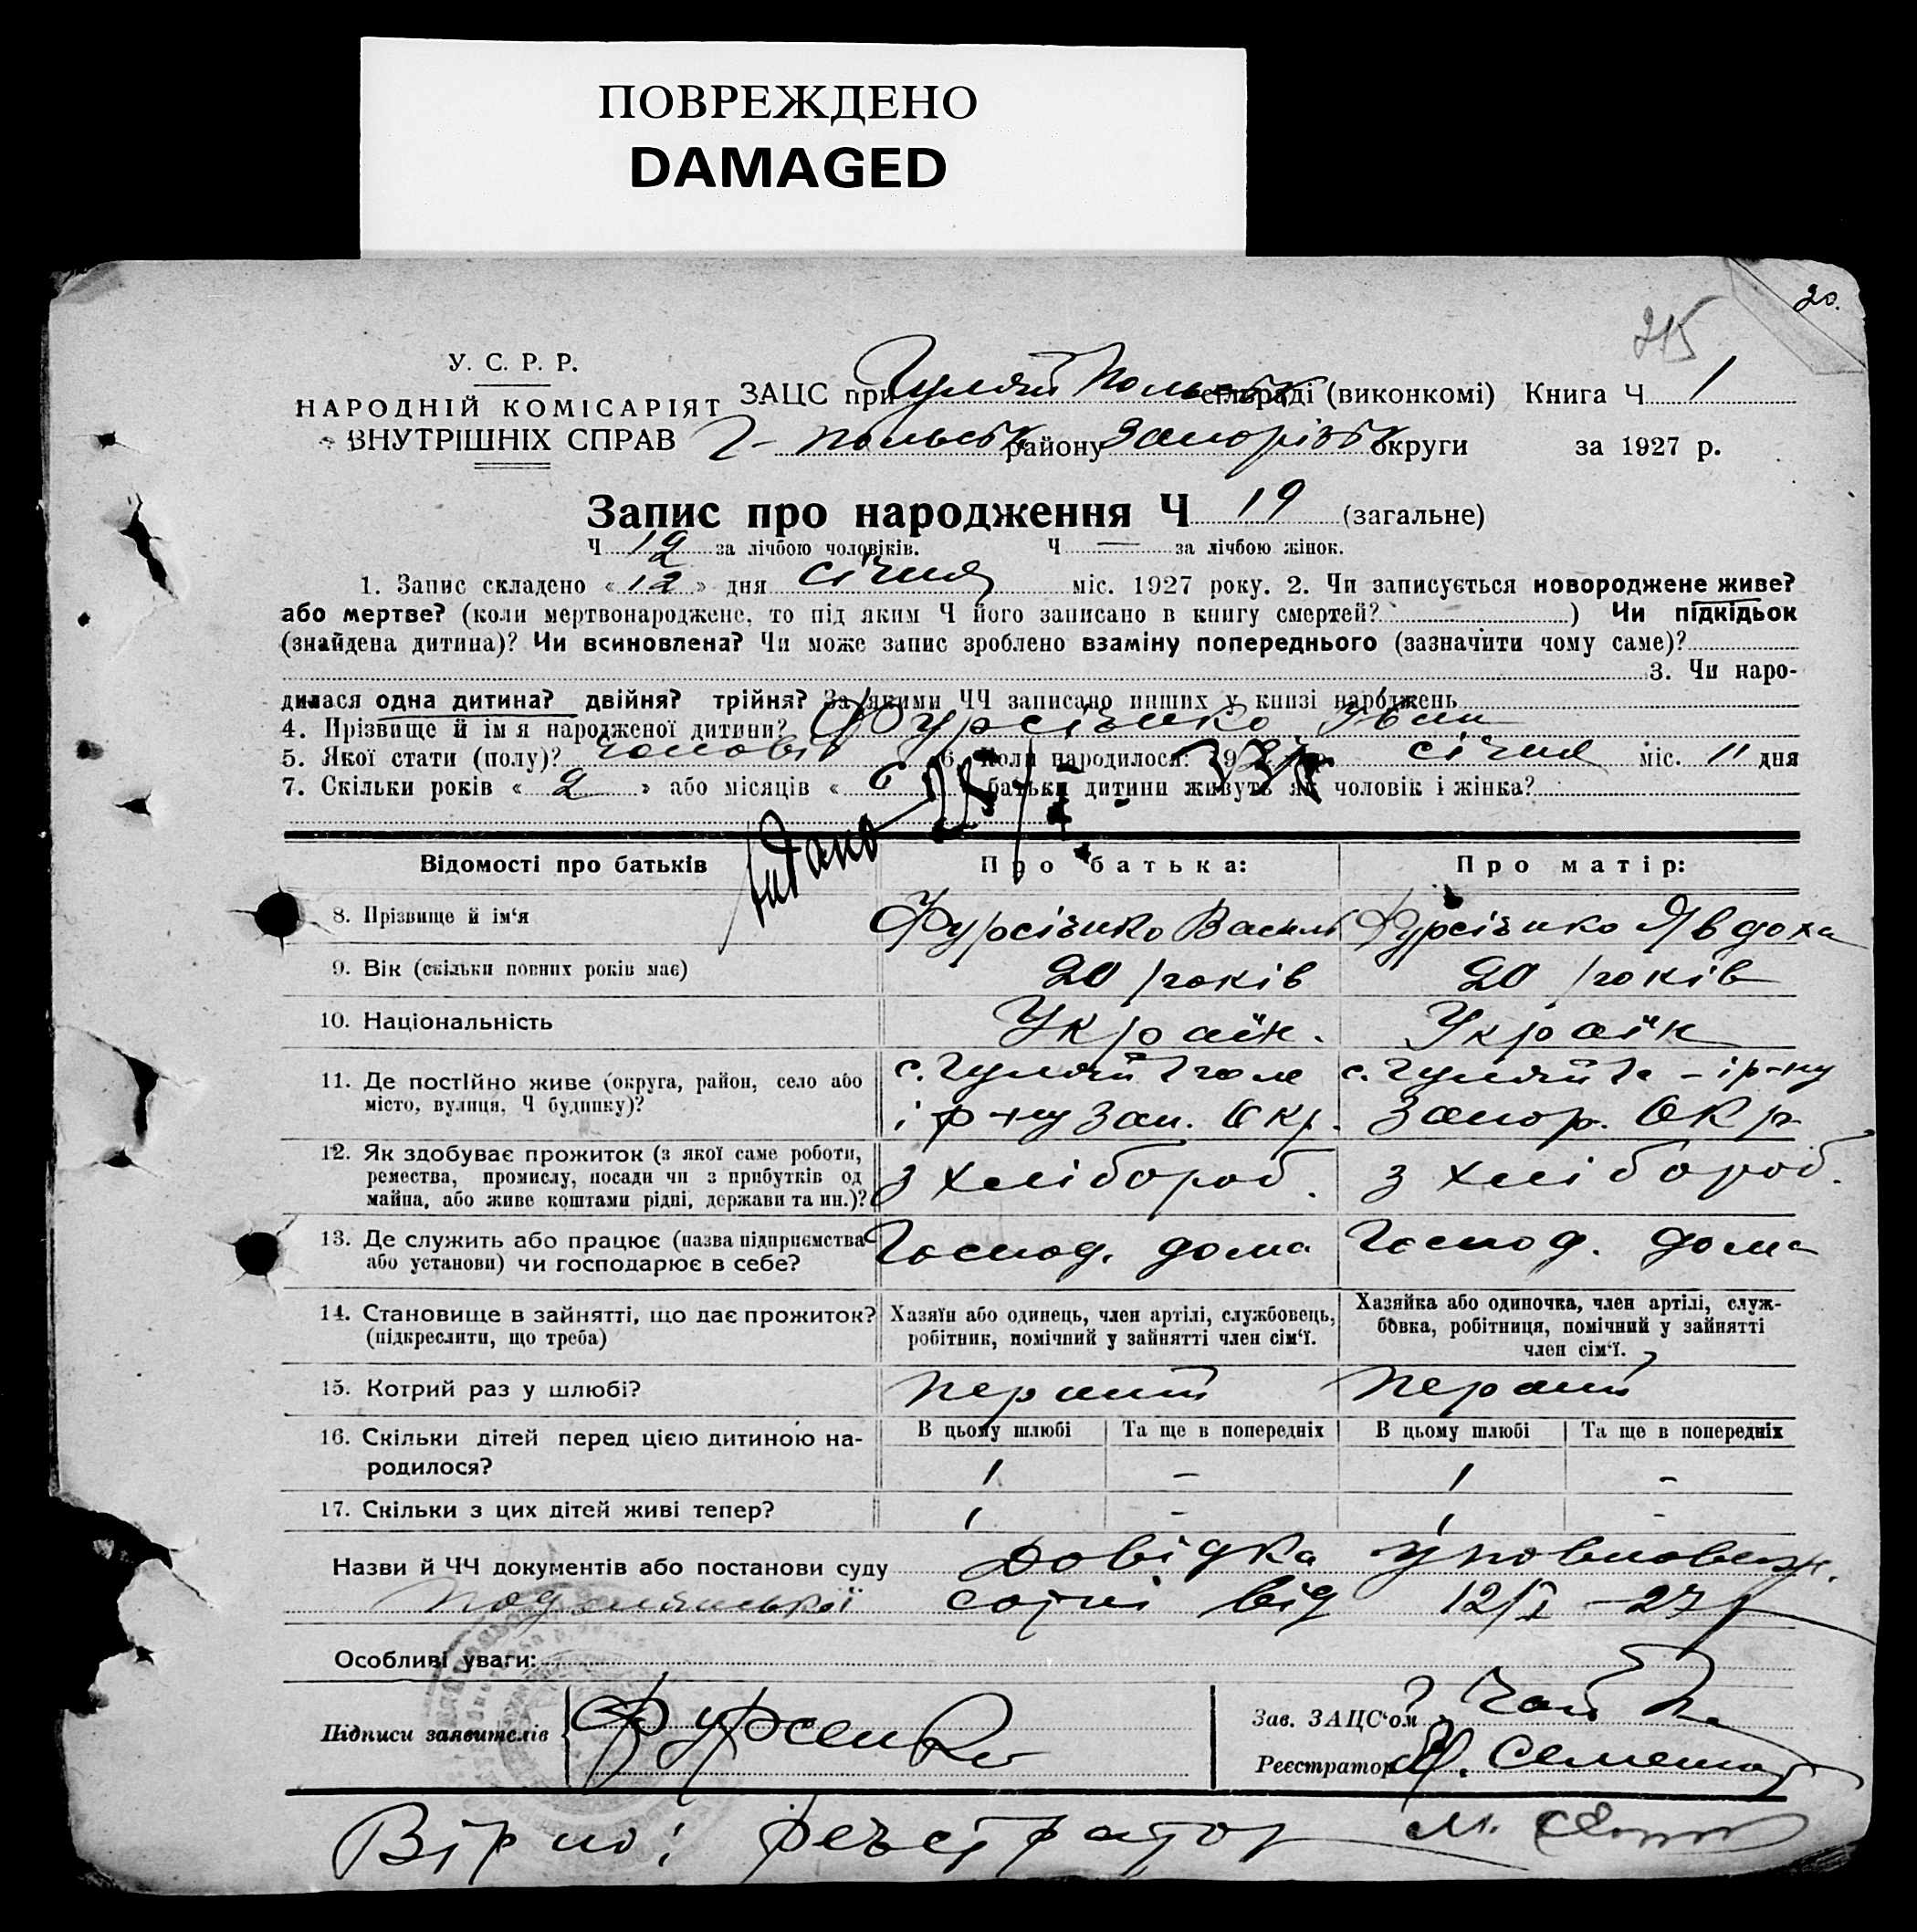 ПОВРЕЖДЕНО
DAMAGED
20.
215
У. С. Р. Р.
НАРОДНІЙ КОМІСАРІЯТ
ВНУТРІШНІХ СПРАВ
ЗАЦС при Гуляй Польськ сільраді (виконкомі) Книга Ч 1
Г-Польськ району Запорізьк округи за 1927 р.
Запис про народження Ч 19 (загальне)
Ч 12 за лічбою чоловіків. Ч — за лічбою жінок.
1. Запис складено « 12 » дня січня міс. 1927 року. 2. Чи записується новороджене живе?
або мертве? (коли мертвонароджене, то під яким Ч його записано в книгу смертей? ) Чи підкідьок
(знайдена дитина)? Чи всиновлена? Чи може запис зроблено взаміну попереднього (зазначити чому саме)?
3. Чи наро-
дилася одна дитина? двійня? трійня? За якими ЧЧ записано инших у книзі народжень
4. Прізвище й ім я народженої дитини? Фурсінко Іван
5. Якої стати (полу)? чоловіч 6. Коли народилося: 192 р. січня міс. 11 дня
7. Скільки років « 2 » або місяців « 6 батьки дитини живуть як чоловік і жінка?
Видано
Відомості про батьків Про батька: Про матір:
8. Прізвище й ім‘я Фурсінко Василь Фурсінко Явдоха
9. Вік (скільки повних років має) 20 років 20 років
10. Національність Україн. Україн
11. Де постійно живе (округа, район, село або
місто, вулиця, Ч будинку)?
с. Гуляй Поле
і р-ну Зап. Окр.
с. Гуляй П - і р-ну
Запор. Окр
12. Як здобуває прожиток (з якої саме роботи,
ремества, промислу, посади чи з прибутків од
майна, або живе коштами рідні, держави та ин.)?
з хлібороб. з хлібороб.
13. Де служить або працює (назва підприємства
або установи) чи господарює в себе?
Господ. дома Господ. дома
14. Становище в зайнятті, що дає прожиток?
(підкреслити, що треба)
Хазяїн або одинець, член артілі, службовець,
робітник, помічний у зайнятті член сім‘ї.
Хазяйка або одиночка, член артілі, служ-
бовка, робітниця, помічний у зайнятті
член сім‘ї.
15. Котрий раз у шлюбі? перший перший
16. Скільки дітей перед цією дитиною на-
родилося?
В цьому шлюбі Та ще в попередніх В цьому шлюбі Та ще в попередніх
1 – 1 –
17. Скільки з цих дітей живі тепер? 1 – 1 –
Назви й ЧЧ документів або постанови суду Довідка уповноваж.
Подолянської сотні від 12/I – 27 р
Особливі уваги:
Підписи заявителів Фурсенко
Зав. ЗАЦС‘ом
Реєстратор
Вірно: Реєстратор